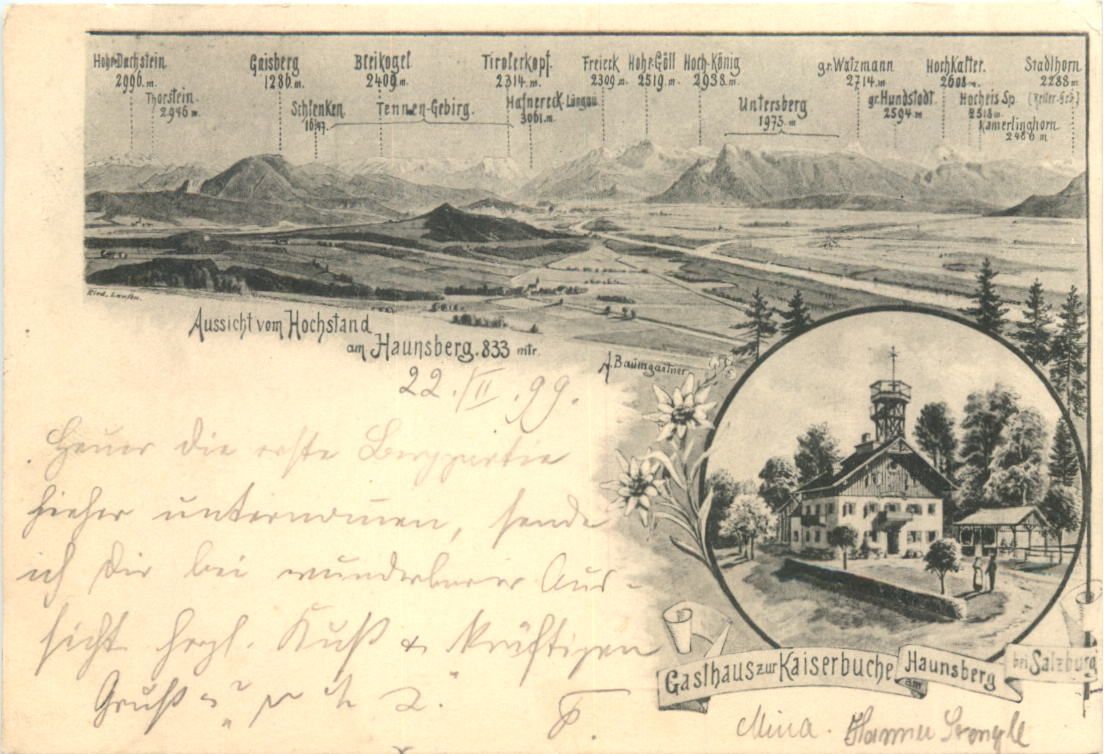 Hohe Dachstein
2996. m.
Thorstein.
2946 m.
Gaisberg
1286. m.
Schlenken.
1647.
Bleikogel
2409. m.
Tennen-Gebirg.
Tirolerkopf.
2314. m.
Hafnereck. Lungau
3061. m.
Freieck
2309. m.
Hohe-Göll
2519. m.
Hoch-König
2938. m.
Untersberg
1975. m
gr. Watzmann
2714. m
gr. Hundstodt
2594 m
Hochkalter.
2608. m
Hocheis Sp.
2513 m
Kamerlinghorn
2486 m
Stadlhorn
2288 m
(Reiter-Geb)
Ried. Laufen.
Aussicht vom Hochstand
am Haunsberg. 833 mtr.
A. Baumgartner
22./II. 99.
Heuer die erste Bergpartie
hieher unternomen, sende
ich Dir bei wunderbarer Aus-
sicht herzl. Kuß & kräftigen
Gruß
Mina.
Gasthaus zur Kaiserbuche am Haunsberg bei Salzburg